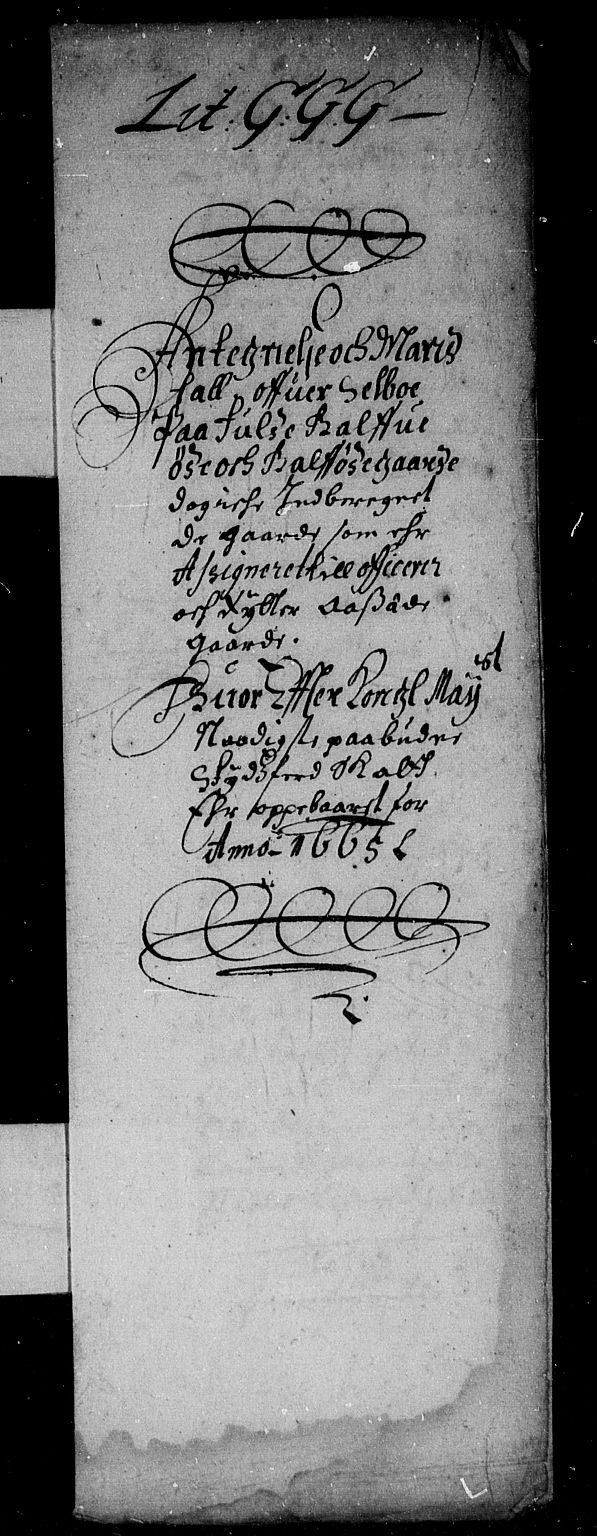 Lit. G.G.G –
Antegnelse och Mandz
tall offuer Selboe
Paa fulde halffue
øde och halfføde gaarde
dog iche Indberegnet
de gaarde som ehr
Assigneret till officerer
och Rytter saasæde
gaarde.
Huor Effter Kongl May st
Naadigste paabudne
Skydtzferd Skatt
Ehr oppebaaret for
Anno 1665